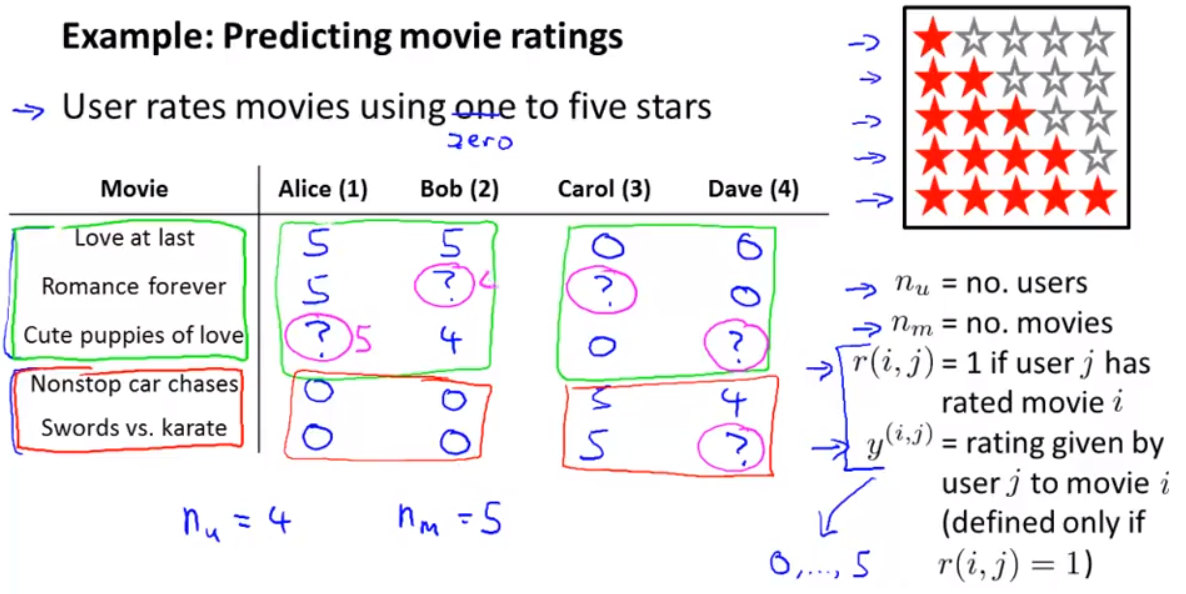 Example: Predicting movie ratings
→ User rates movies using one to five stars
zero
Movie Alice (1) Bob (2) Carol (3) Dave (4)
Love at last 5 5 0 0
Romance forever 5 ? ? 0
Cute puppies of love ? 5 4 0 ?
Nonstop car chases 0 0 5 4
Swords vs. karate 0 0 5 ?
n_u = 4 n_m = 5
→ n_u = no. users
→ n_m = no. movies
→ r(i, j) = 1 if user j has
rated movie i
→ y^(i,j) = rating given by
user j to movie i
(defined only if
r(i, j) = 1)
0,..., 5